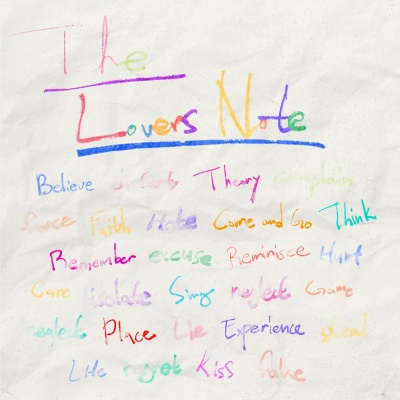 The
Lovers Note
Believe disturb Theory complain
force Faith Hate Come and Go Think
Remember excuse Reminisce Hurt
Care isolate Sing neglect Game
neglect Place Lie Experience steal
Life regret Kiss fake